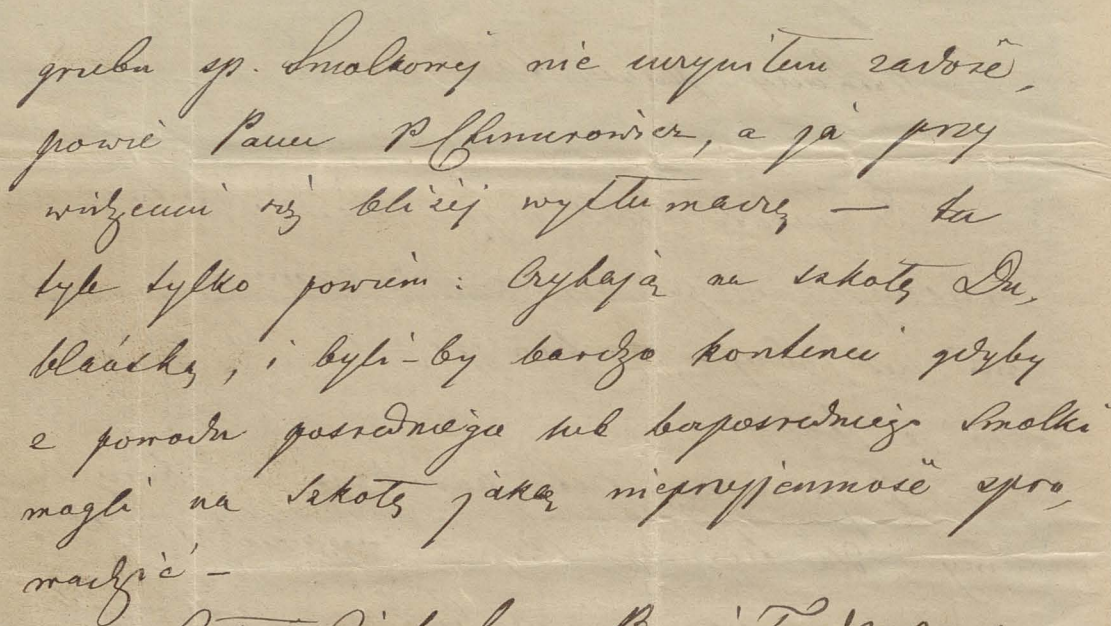 grzebu sp. Smolkowej nie uczyniłem zadość,
powie Panu P Chmurowicz, a ja przy
widzeniu się bliżej wytłumaczę — tu
tyle tylko powiem: Czyhają na szkołę Du,
blańską, i byli-by bardzo kontenci gdyby
z powodu pośredniego lub bezpośredniego Smolki
mogli na szkołę jaką nieprzyjemność spro,
wadzić —